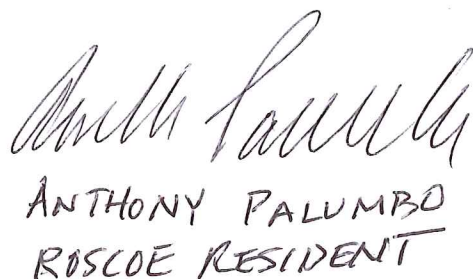 ANTHONY PALUMBO
ROSCOE RESIDENT